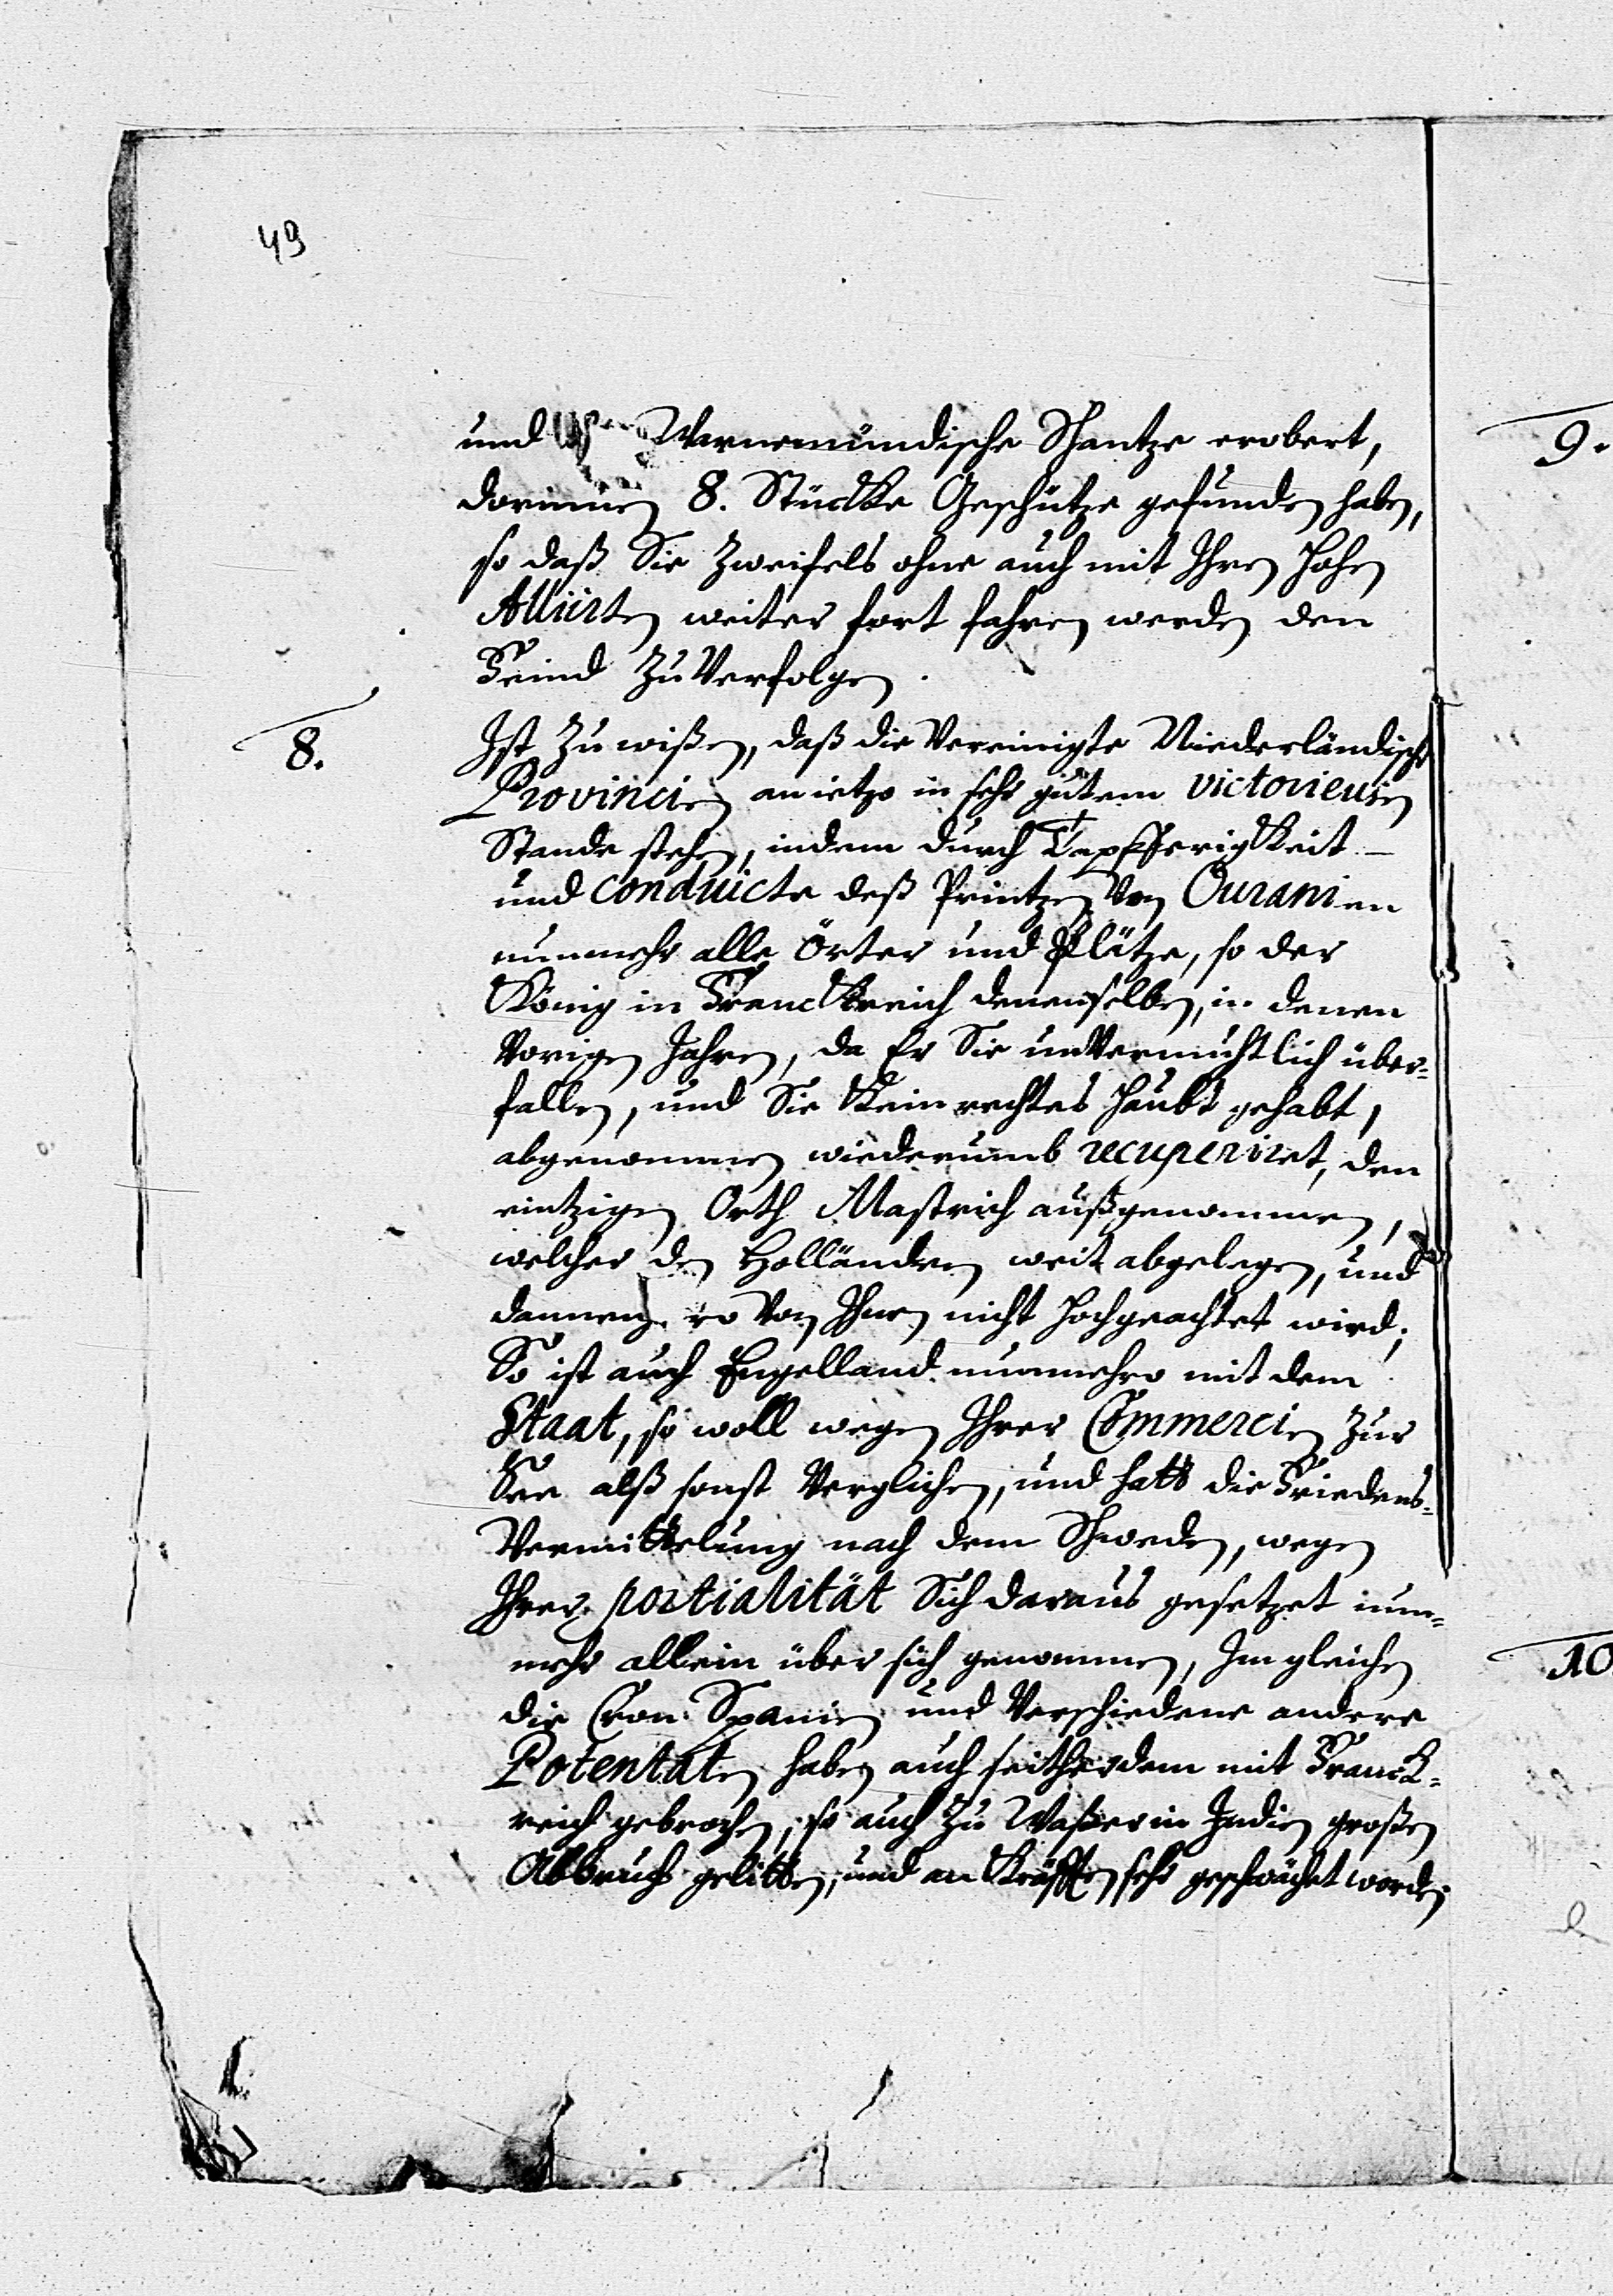 49
und Warnemündische Schantze erobert,
dorinnen 8. Stücke Geschütze gefunden haben,
so daß Sie Zweifels ohne auch mit Ihren Hohen
Alliirten weiter fort fahren werden den
Feind Zu Verfolgen.
8.
Ist Zu wißen, daß die Vereinigte Niederländische
Provincien an ietzo in sehr gutem victorieusen
Stande stehen, indem durch Tapfferigkeit
und conduicte deß Printzen Von Ouranien
nunmehr alle Örter und Plätze, so der
König in Franckreich denenselben, in denen
Vorigen Jahren, da Er Sie unVermuhtlich über-
fallen, und Sie Kein rechtes Haubt gehabt,
abgenommen wiederumb recuperiret, den
eintzigen Orth Mastrich außgenommen,
welcher den Holländern weit abgelegen, und
dannenhero Von Ihnen nicht Hochgeachtet wird;
So ist auch Engelland nunmehro mit dem
Staat, so woll wegen Ihrer Commercien Zur
See alß sonst Verglichen, und hatt die Friedens-
Vermittelung nach dem Schweden, wegen
Ihrer partialität Sich daraus gesetzet nun-
mehr allein über sich genommen, Imgleichen
die Cron Spanien und Verschiedene andere
Potentaten haben auch seitherdem mit Franck-
reich gebrochen, so auch Zu Waßer in Indien großen
Abbruch gelitten, und an Kräfften sehr geschwächet worden.
9.
10